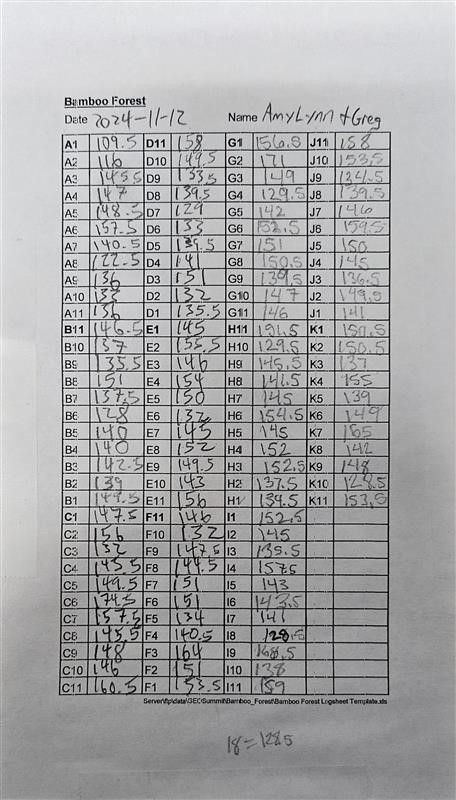 Bamboo Forest
Date 2024-11-12 Name AmyLynn + Greg
A1 109.5 D11 158 G1 156.5 J11 158
A2 116 D10 149.5 G2 171 J10 153.5
A3 145.5 D9 133.5 G3 149 J9 134.5
A4 147 D8 139.5 G4 129.5 J8 139.5
A5 148.5 D7 129 G5 142 J7 146
A6 157.5 D6 133 G6 152.5 J6 159.5
A7 140.5 D5 135.5 G7 151 J5 150
A8 122.5 D4 141 G8 150.5 J4 145
A9 136 D3 151 G9 139.5 J3 136.5
A10 133 D2 132 G10 147 J2 149.5
A11 136 D1 135.5 G11 146 J1 141
B11 146.5 E1 145 H11 151.5 K1 150.5
B10 137 E2 155.5 H10 129.5 K2 150.5
B9 135.5 E3 146 H9 145.5 K3 137
B8 151 E4 154 H8 141.5 K4 155
B7 137.5 E5 150 H7 145 K5 139
B6 128 E6 132 H6 154.5 K6 149
B5 140 E7 145 H5 145 K7 165
B4 140 E8 152 H4 152 K8 142
B3 142.5 E9 149.5 H3 152.5 K9 148
B2 139 E10 143 H2 137.5 K10 128.5
B1 149.5 E11 156 H1 134.5 K11 153.5
C1 147.5 F11 146 I1 152.5
C2 156 F10 132 I2 145
C3 132 F9 147.5 I3 135.5
C4 145.5 F8 144.5 I4 157.5
C5 149.5 F7 151 I5 143
C6 174.5 F6 151 I6 143.5
C7 157.5 F5 134 I7 141
C8 145.5 F4 140.5 I8 128.5
C9 148 F3 164 I9 168.5
C10 146 F2 151 I10 138
C11 160.5 F1 153.5 I11 159
Server\ftp\data\GEO\Summit\Bamboo_Forest\Bamboo Forest Logsheet Template.xls
I8=128.5